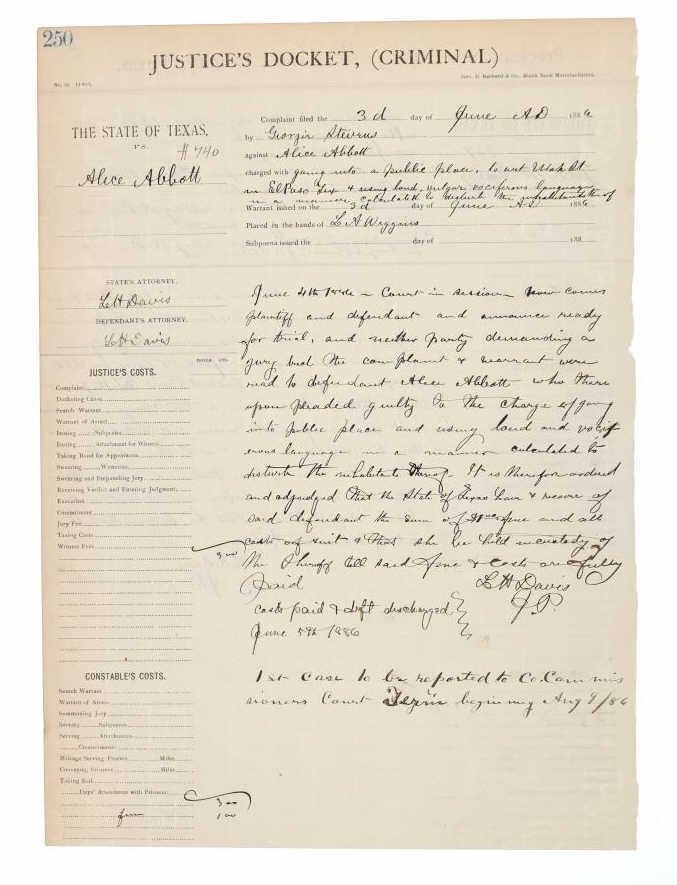 250
JUSTICE'S DOCKET, (CRIMINAL)
THE STATE OF TEXAS,
VS.
#740
Alice Abbott
Complaint filed the 3d day of June AD 1886
by Georgia Stevens
against Alice Abbott
charged with going into a public place, to wit Utah St
in El Paso Tex & using loud, vulgar vociferous language
in a manner calculated to disturb the inhabitants of
Warrant issued on the 3d day of June A.D. 1886
Placed in the hands of L A Wiggins
Subpoena issued the day of 188
STATE'S ATTORNEY.
L H Davis
DEFENDANT'S ATTORNEY.
L H Davis
DOLLS. CTS.
JUSTICE'S COSTS.
Complaint
Docketing Cause
Search Warrant
Warrant of Arrest
Issuing Subpoena
Issuing Attachment for Witness
Taking Bond for Appearance
Swearing Witnesses
Swearing and Empaneling Jury
Receiving Verdict and Entering Judgment
Execution
Commitment
Jury Fee
Taxing Costs
Witness Fees
3 00
CONSTABLE'S COSTS.
Search Warrant
Warrant of Arrest
Summoning Jury
Serving Subpoenas
Serving Attachments
Commitment
Mileage Serving Process Miles
Conveying Prisoner Miles
Taking Bail
Days' Attendance with Prisoner
3 00
fine 1 00
June 4th 1886 – Court in session – now comes
plaintiff and defendant and announce ready
for trial, and neither party demanding a
jury had the complaint & warrant were
read to defendant Alice Abbott who there
upon pleaded guilty to the charge of going
into public place and using loud and vocif
erous language in a manner calculated to
disturb the inhabitants thereof. It is therefore ordered
and adjudged that the State of Texas have & recover of
said defendant the sum of fine and all
costs of suit & that she be held in custody of
the Sheriff till said fine & costs are fully
paid L H Davis
J.P.
costs paid & deft discharged
June 5th 1886
1st case to be reported to Co. Commis
sioners Court Term beginning Aug 9/86